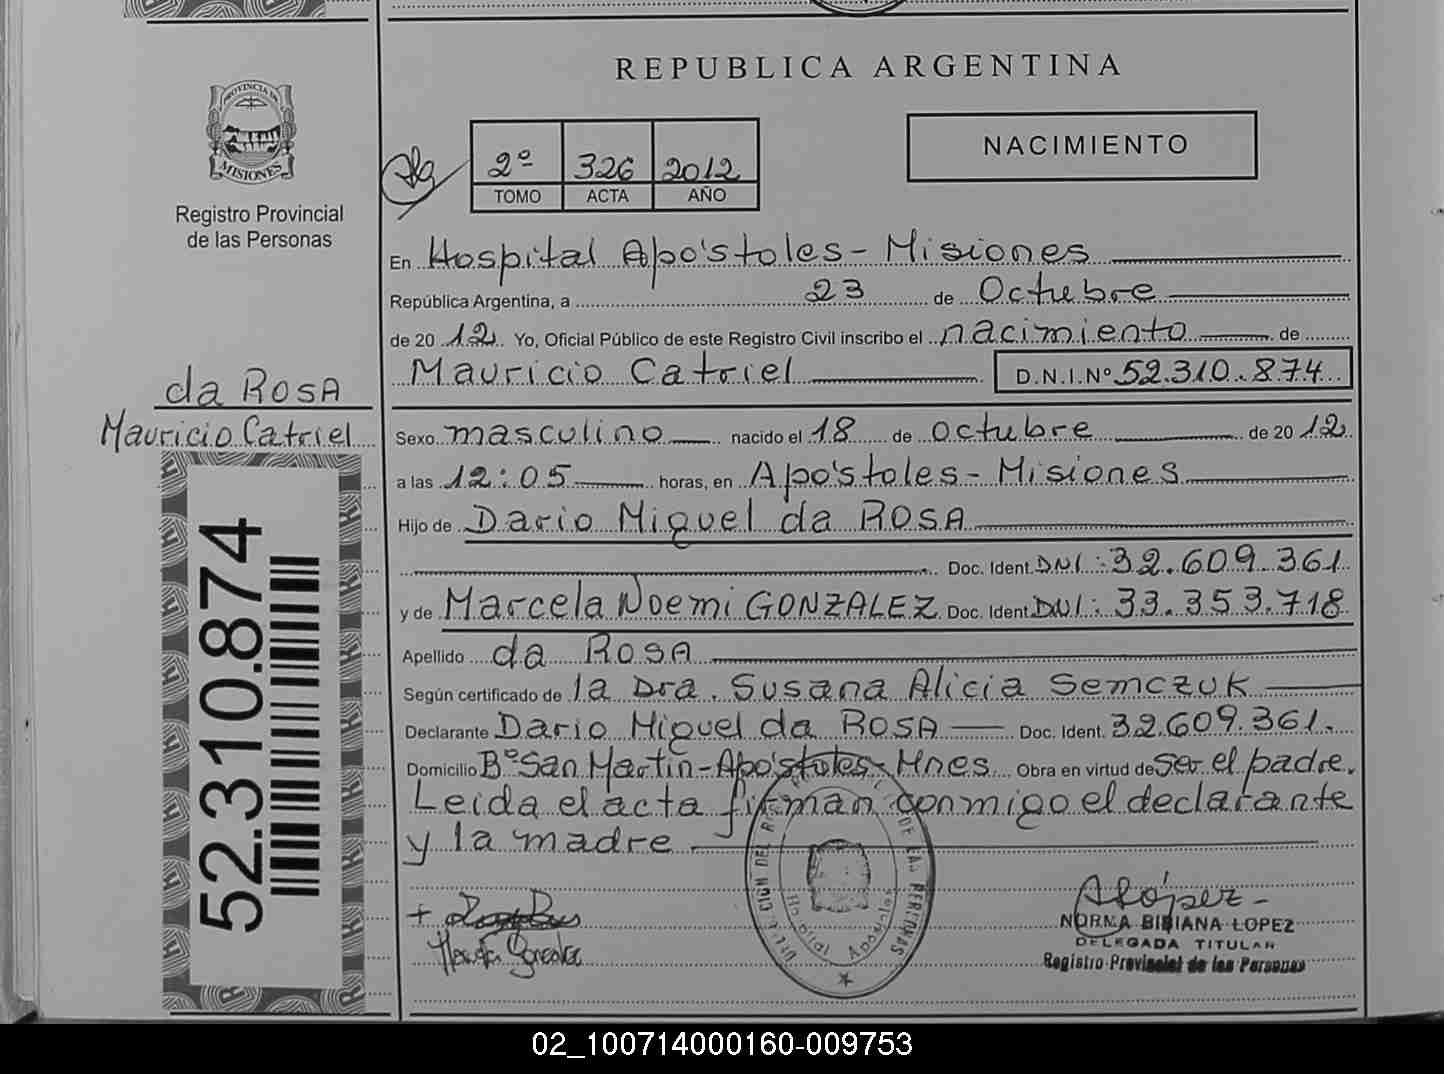 REPUBLICA ARGENTINA
PROVINCIA DE
MISIONES
Registro Provincial
de las Personas
2º 326 2012
TOMO ACTA AÑO
NACIMIENTO
En Hospital Apóstoles - Misiones
República Argentina, a 23 de Octubre
de 20 12 Yo, Oficial Público de este Registro Civil inscribo el nacimiento de
Mauricio Catriel D.N.I.Nº 52.310.874
da ROSA
Mauricio Catriel
52.310.874
Sexo masculino nacido el 18 de octubre de 20 12
a las 12:05 horas, en Apóstoles - Misiones
Hijo de Dario Miguel da ROSA
Doc. Ident. DNI: 32.609.361
y de Marcela Noemi GONZALEZ Doc. Ident. DNI: 33.353.718
Apellido da ROSA
Según certificado de la Dra. Susana Alicia Semczuk
Declarante Dario Miguel da ROSA Doc. Ident. 32.609.361.
Domicilio Bº San Martin - Apóstoles - Mnes Obra en virtud de ser el padre.
Leida el acta firman conmigo el declarante
y la madre
DEL DE LAS PERSONAS
Hospital Apóstoles
ALópez
NORMA BIBIANA LOPEZ
DELEGADA TITULAR
Registro Provincial de las Personas
02_100714000160-009753